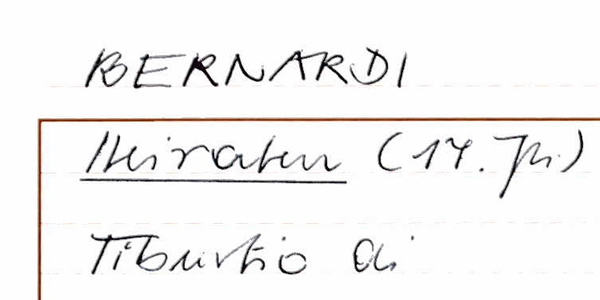 BERNARDI
Heiraten (17. Jh.)
Tiburtio di